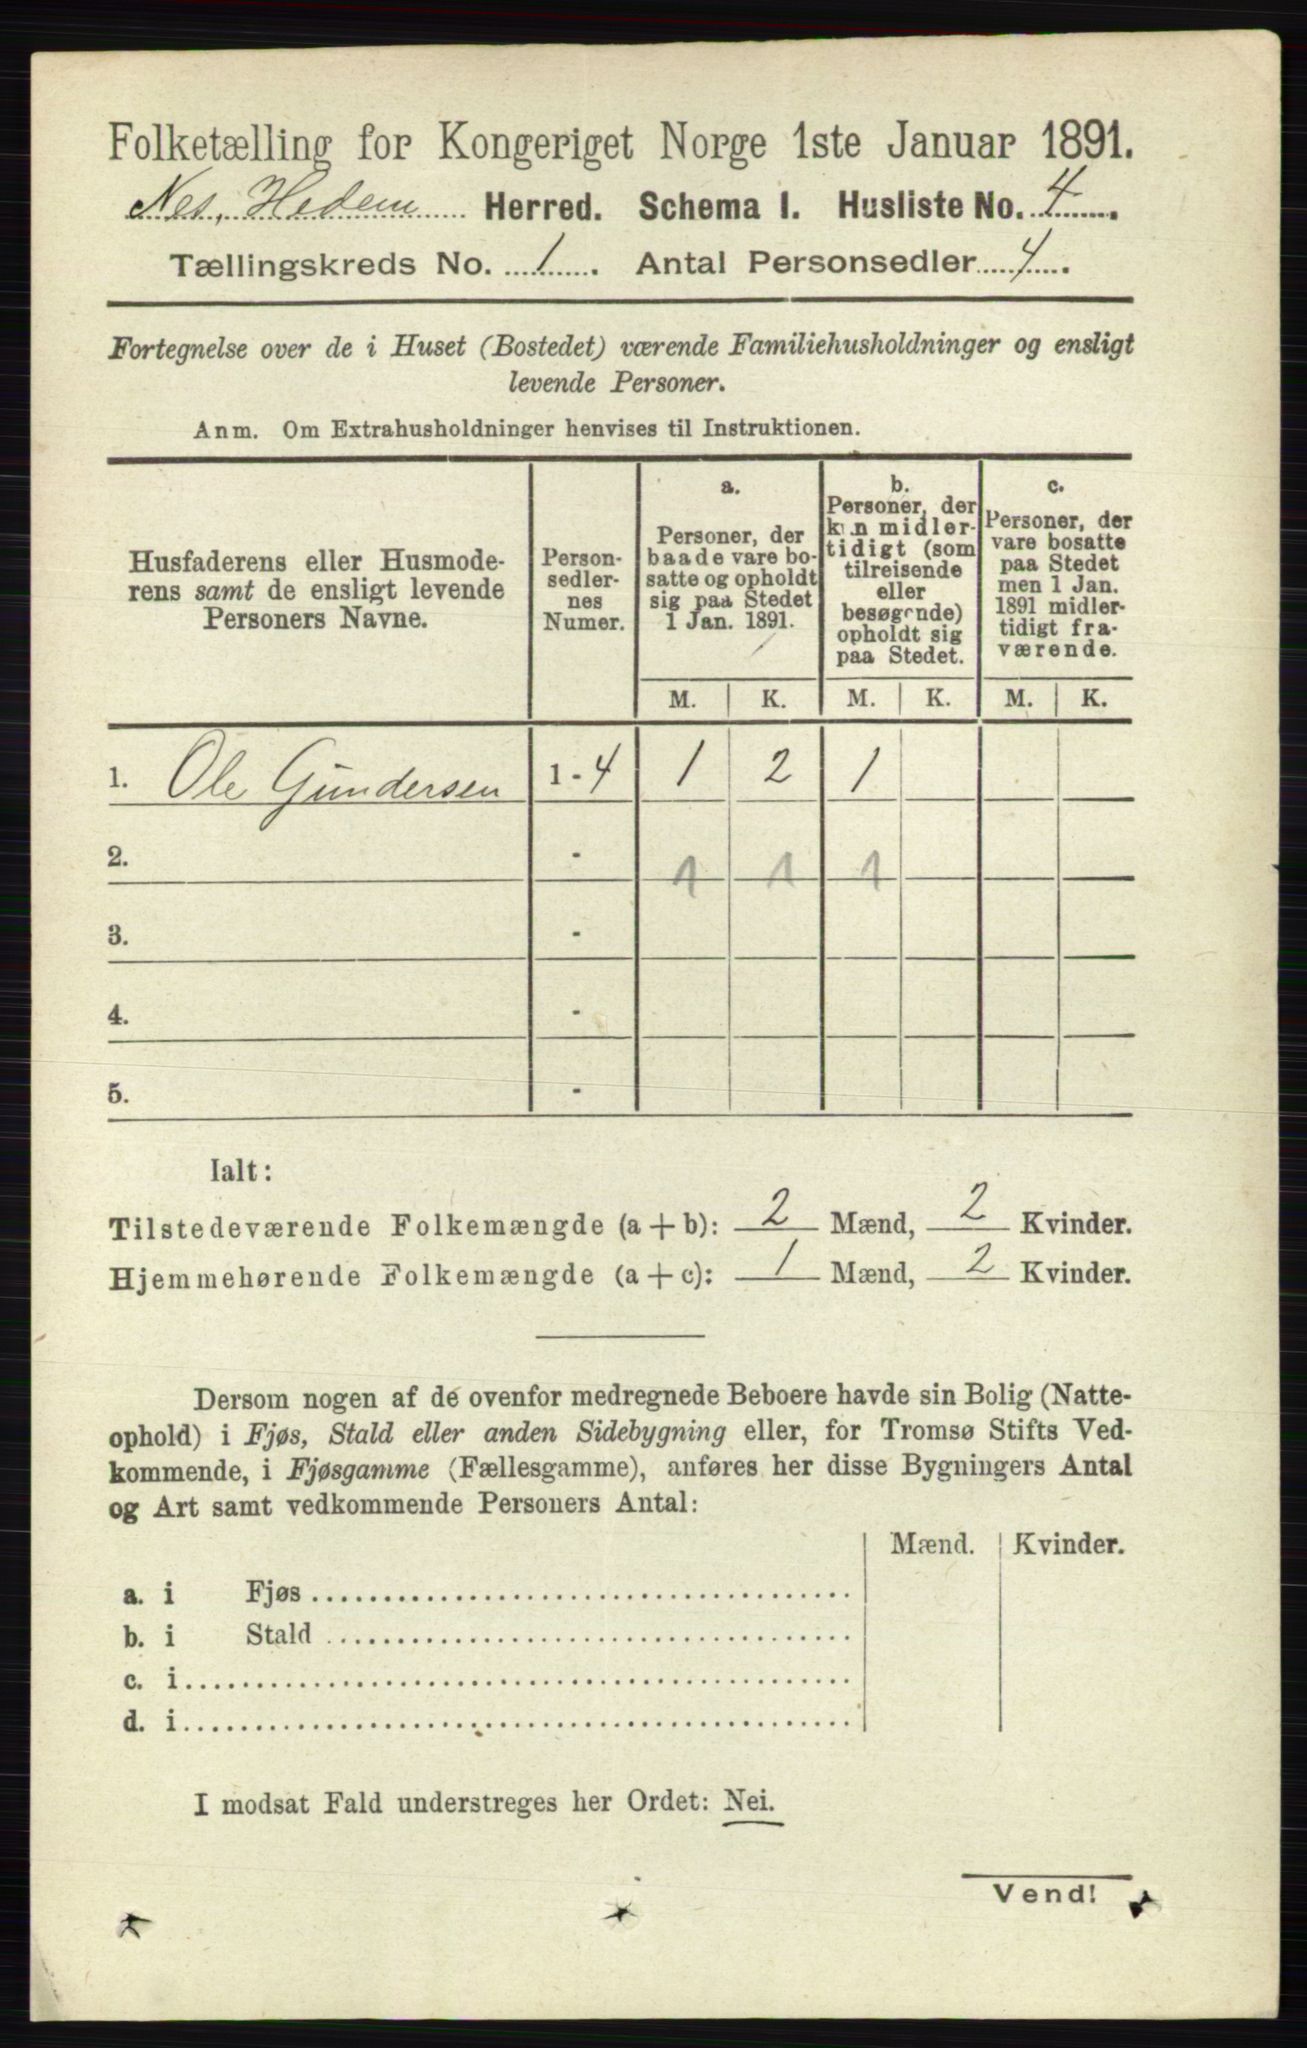 Folketælling for Kongeriget Norge 1ste Januar 1891.
Nes, Hedem Herred. Schema I. Husliste No. 4.
Tællingskreds No. 1. Antal Personsedler 4.
Fortegnelse over de i Huset (Bostedet) værende Familiehusholdninger og ensligt
levende Personer.
Anm. Om Extrahusholdninger henvises til Instruktionen.
Husfaderens eller Husmode-
rens samt de ensligt levende
Personers Navne.
Person-
sedler-
nes
Numer.
a.
Personer, der
baade vare bo-
satte og opholdt
sig paa Stedet
1 Jan. 1891.
b.
Personer, der
kun midler-
tidigt (som
tilreisende
eller
besøgende)
opholdt sig
paa Stedet.
c.
Personer, der
vare bosatte
paa Stedet
men 1 Jan.
1891 midler-
tidigt fra-
værende.
M. K. M. K. M. K.
1. Ole Gundersen 1 - 4 1 2 1
2. - 1 1 1
3. -
4. -
5. -
Ialt:
Tilstedeværende Folkemængde (a + b): 2 Mænd, 2 Kvinder.
Hjemmehørende Folkemængde (a + c): 1 Mænd, 2 Kvinder.
Dersom nogen af de ovenfor medregnede Beboere havde sin Bolig (Natte-
ophold) i Fjøs, Stald eller anden Sidebygning eller, for Tromsø Stifts Ved-
kommende, i Fjøsgamme (Fællesgamme), anføres her disse Bygningers Antal
og Art samt vedkommende Personers Antal:
Mænd. Kvinder.
a. i Fjøs
b. i Stald
c. i
d. i
I modsat Fald understreges her Ordet: Nei.
Vend!